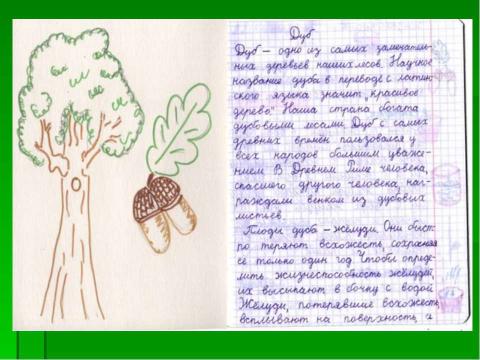 Дуб
Дуб – одно из самых замечатель-
ных деревьев наших лесов. Научное
название дуба в переводе с латин-
ского языка значит „красивое
дерево“. Наша страна богата
дубовыми лесами. Дуб с самых
древних времён пользовался у
всех народов большим уваже-
нием. В Древнем Риме человека,
спасшего другого человека, наг-
раждали венком из дубовых
листьев.
Плоды дуба – жёлуди. Они быст-
ро теряют всхожесть, сохраняя
её только один год. Чтобы опреде-
лить жизнеспособность желудей,
их высыпают в бочку с водой.
Жёлуди, потерявшие всхожесть,
всплывают на поверхность, а